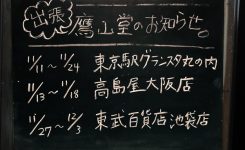 出張
鷹山堂のお知らせ。
11/11〜11/24 東京駅グランスタ丸の内
11/13〜11/18 高島屋大阪店
11/27〜12/3 東武百貨店池袋店